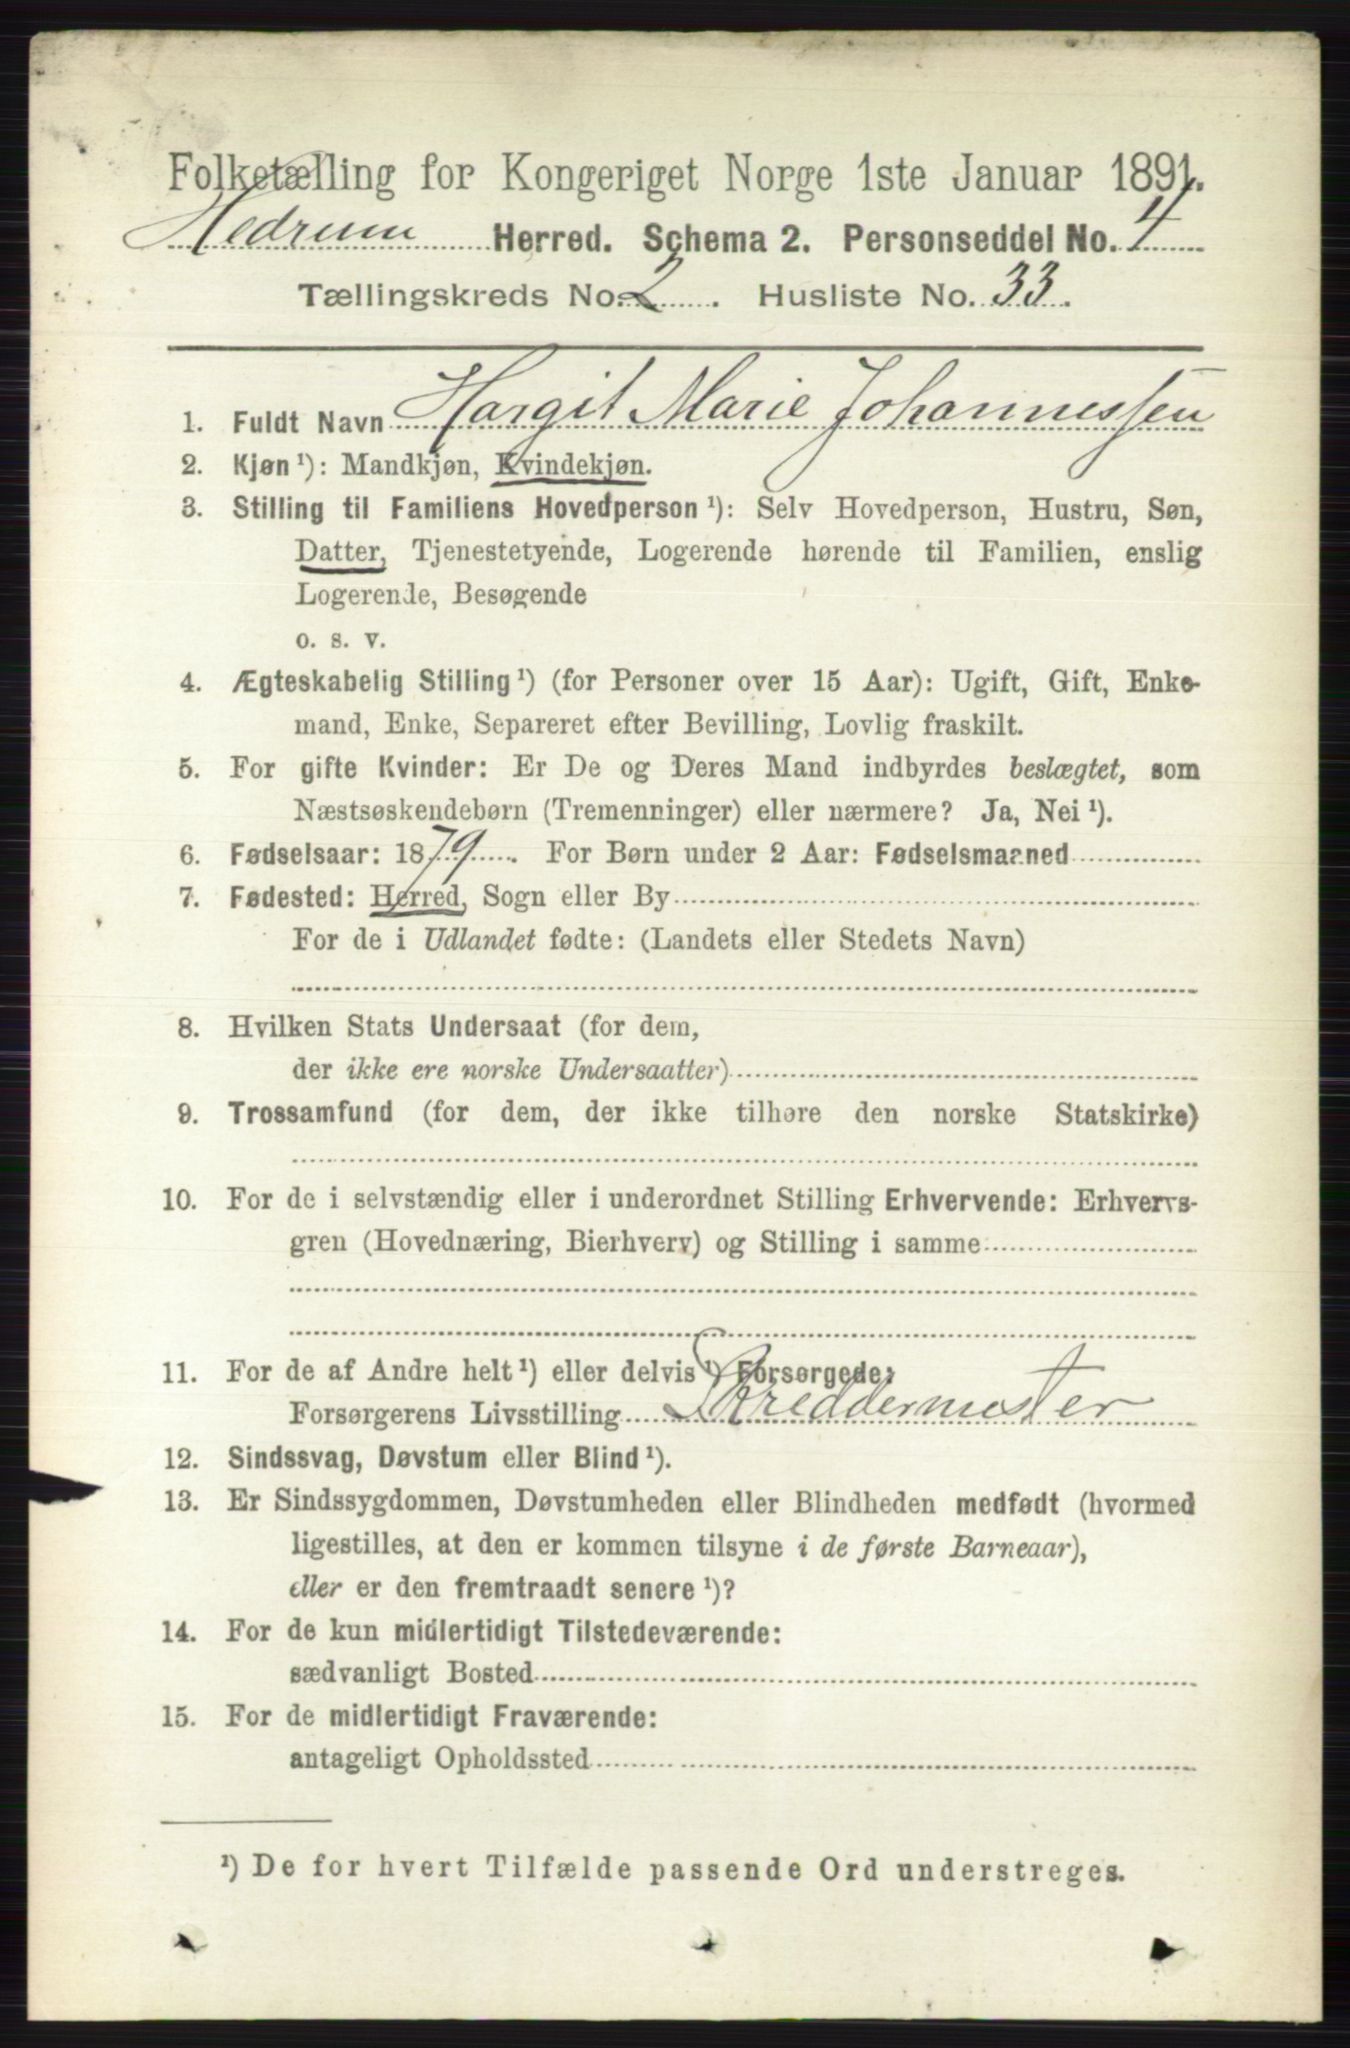 Folketælling for Kongeriget Norge 1ste Januar 1891.
Hedrum Herred. Schema 2. Personseddel No. 4
Tællingskreds No. 2. Husliste No. 33.
1. Fuldt Navn Hargit Marie Johannessen
2. Kjøn ¹): Mandkjøn, Kvindekjøn.
3. Stilling til Familiens Hovedperson ¹): Selv Hovedperson, Hustru, Søn,
Datter, Tjenestetyende, Logerende hørende til Familien, enslig
Logerende, Besøgende
o. s. v.
4. Ægteskabelig Stilling ¹) (for Personer over 15 Aar): Ugift, Gift, Enke-
mand, Enke, Separeret efter Bevilling, Lovlig fraskilt.
5. For gifte Kvinder: Er De og Deres Mand indbyrdes beslægtet, som
Næstsøskendebørn (Tremenninger) eller nærmere? Ja, Nei ¹).
6. Fødselsaar: 1879. For Børn under 2 Aar: Fødselsmaaned
7. Fødested: Herred, Sogn eller By
For de i Udlandet fødte: (Landets eller Stedets Navn)
8. Hvilken Stats Undersaat (for dem,
der ikke ere norske Undersaatter)
9. Trossamfund (for dem, der ikke tilhøre den norske Statskirke)
10. For de i selvstændig eller i underordnet Stilling Erhvervende: Erhvervs-
gren (Hovednæring, Bierhverv) og Stilling i samme
11. For de af Andre helt ¹) eller delvis ¹) Forsørgede:
Forsørgerens Livsstilling Skreddermester
12. Sindssvag, Døvstum eller Blind ¹).
13. Er Sindssygdommen, Døvstumheden eller Blindheden medfødt (hvormed
ligestilles, at den er kommen tilsyne i de første Barneaar),
eller er den fremtraadt senere ¹)?
14. For de kun midlertidigt Tilstedeværende:
sædvanligt Bosted
15. For de midlertidigt Fraværende:
antageligt Opholdssted
¹) De for hvert Tilfælde passende Ord understreges.